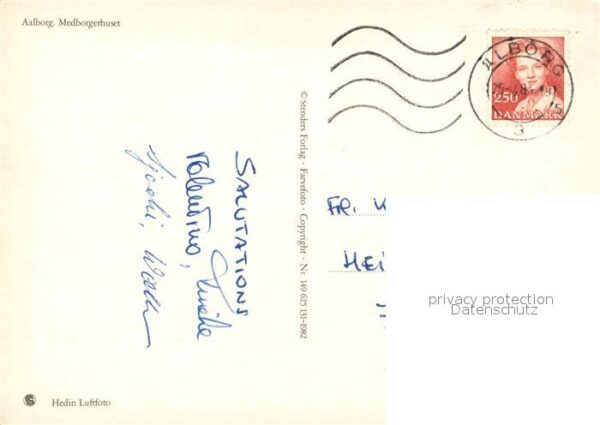 Aalborg. Medborgerhuset
ALBORG
2.50
DANMARK
© Stenders Forlag · Farvefoto · Copyright · Nr. 149 625 131–1982
SALUTATIONS
Valentino,
FR.
HEI
privacy protection
Datenschutz
S
Hedin Luftfoto